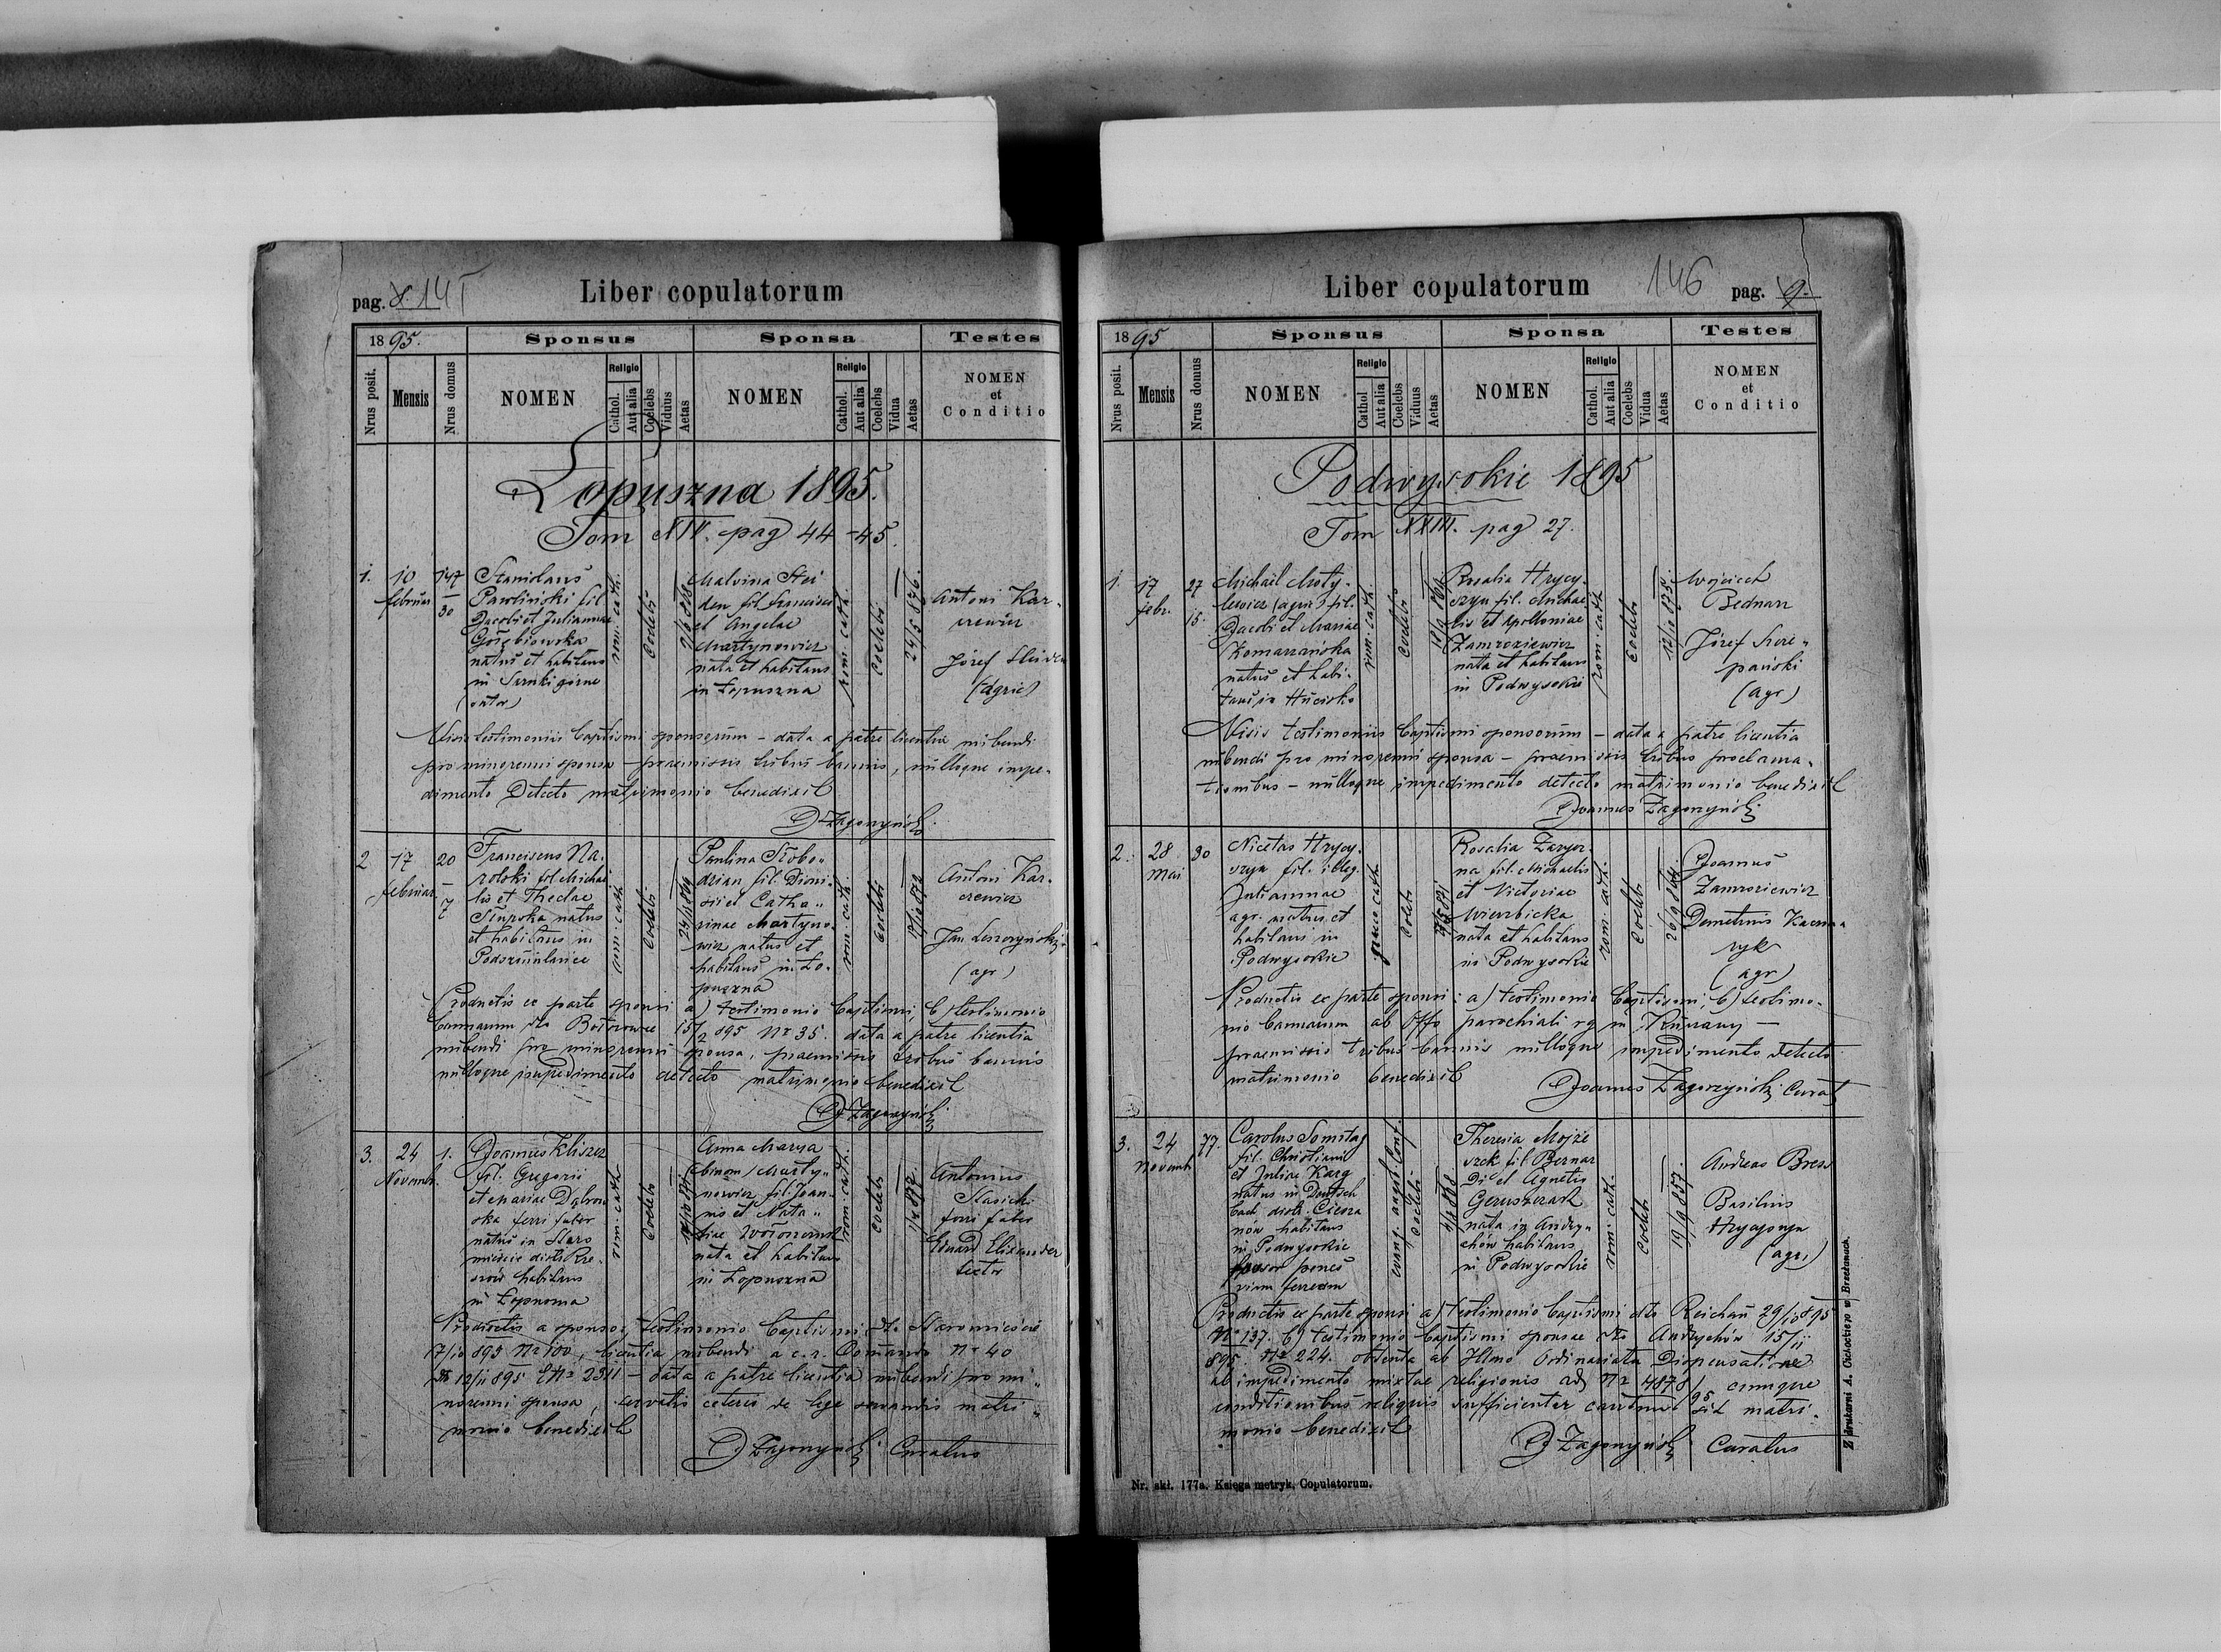 pag. 8. 145
Liber copulatorum
1895.
Sponsus
Sponsa
Testes
Nrus posit.
Mensis
Nrus domus
NOMEN
Religio
Cathol.
Aut alia
Coelebs
Viduus
Aetas
NOMEN
Religio
Cathol.
Aut alia
Coelebs
Vidua
Aetas
NOMEN
et
Conditio
Łopuszna 1895.
Tom XIV. pag 44-45.
1.
10
februar
147
30
Stanislaus
Pawliński fil
Jacobi et Julianna
Gołębiowska
natus et habitans
in Sarnki górne
rom. cath.
Coelebs
Malvina Stei
den fil Francisci
et Angelae
Martynowicz
nata et habitans
in Łopuszna
rom. cath.
Coelebs
24/5 876.
Antoni Kar-
czewicz
Józef Steiden
(agric)
Visis testimoniis baptismi sponsorum - data a patre licentia nubendi
pro minorenni sponsa - praemissis tribus bannis, nulloque impe-
dimento detecto matrimonio benedixit
J Zagorzyński
2
17
februar
20
7
Franciscus Na-
rolski fil Michae
lis et Theclae
Słupska natus
et habitans in
Podszumlańce
rom. cath
Coelebs
24/11 869
Paulina Słobo-
dzian fil. Dioni-
sii et Catha-
rinae Martyno-
wicz natus et
habitans in Ło-
puszna
rom. cath.
Coelebs
Antoni Kar-
czewicz
Jan Leszczyński
(agr)
Productis ex parte sponsi a) testimonio baptismi, b) testimonio
bannorum dto Bołszowce 15/2 895 Nr 35. data a patre licentia
nubendi pro minorenni sponsa, praemissis tribus bannis
nulloque impedimento detecto matrimonio benedixit
J Zagorzyński
3.
24
Novemb.
1.
Joannes Kliszcz
fil. Gregorii
et Mariae Dąbrow
ska ferri faber
natus in Staro
mieście distr. Rze
szów habitans
in Łopuszna
rom. cath
Coelebs
Anna Marya
(binom) Marty-
nowicz, fil. Joan-
nis et Nata-
liae
nata et habitans
in Łopuszna
rom. cath.
Coelebs
Antonius
Stasich
ferri faber
Eduard Elixander
tector
Productis a sponso, testimonio baptismi dto Staromieście
17/10 895 Nr 100, licentia nubendi a c. r. Nr 40
12/11 895 Nr 2311 - data a patre licentia nubendi pro mi-
norenni sponsa, servatis ceteris de lege servandis matri-
monio benedixit
J Zagorzyński Curatus
Liber copulatorum
146
pag. 9.
1895
Sponsus
Sponsa
Testes
Nrus posit.
Mensis
Nrus domus
NOMEN
Religio
Cathol
Aut alia
Coelebs
Viduus
Aetas
NOMEN
Religio
Cathol.
Aut alia
Coelebs
Vidua
Aetas
NOMEN
et
Conditio
Podwysokie 1895
Tom XXIII. pag 27.
1.
17
febr.
27
15.
Michael Moty-
lewicz (agric) fil.
Jacobi et Mariae
Komarzańska
natus et habi-
tans in Hucisko
rom. cath.
Coelebs
Rosalia Hrycy-
szyn fil. Michae
lis et Apolloniae
Zamroziewicz
nata et habitans
in Podwysokie
rom. cath
Coelebs
12/10 875.
Wojciech
Bednarz
Józef Szcze-
pański
(agr)
Visis testimoniis baptismi sponsorum - data a patre licentia
nubendi pro minorenni sponsa - praemissis tribus proclama-
tionibus - nulloque impedimento detecto matrimonio benedixit
Joannes Zagorzyński
2.
28
Mai
30
Nicetas Hrycy-
szyn fil. illeg.
Juliannae
agr. natus et
habitans in
Podwysokie
graeco cath.
Coelebs
Rosalia Zaryor
na fil. Michaelis
et Victoriae
Wierzbicka
nata et habitans
in Podwysokie
rom. cath.
Coelebs
26/9 864.
Joannes
Zamroziewicz
Demetrius Kaczma
ryk
(agr)
Productis ex parte sponsi: a) testimonio baptismi, b) testimo-
nio bannorum ab Offo parochiali rg in Kurzany -
praemissis tribus bannis nulloque impedimento detecto
matrimonio benedixit
Joannes Zagorzyński Curat
3.
24
Novemb
77.
Carolus Somstag
fil. Christiani
et Juliae Karg
natus in Deutsch
bach distr. Ciesza
nów habitans
in Podwysokie
penes
viam ferream
evang. augsb. Conf.
Coelebs
Theresia Mojże
szek fil Bernar
di et Agnetis
nata in Andry-
chów habitans
in Podwysokie
rom. cath.
Coelebs
19/9 857.
Andreas Bress
Basilius
Hrycyszyn
(agr.)
Productis ex parte sponsi a) testimonio baptismi dto Reichau 29/10 895
Nr 137. b) testimonio baptismi sponsae dto Andrychów 15/11
895. Nr 224. obtenta ab Illmo Ordinariatu Dispensatione
ab impedimento mixtae religionis ad Nr 4878/95 cumque
conditionibus reliquis sufficienter cautum sit matri-
monio benedixit
J Zagorzyński Curatus
Nr. skł. 177a. Księga metryk, Copulatorum.
Z drukarni A. Cichockiego w Brzeżanach.